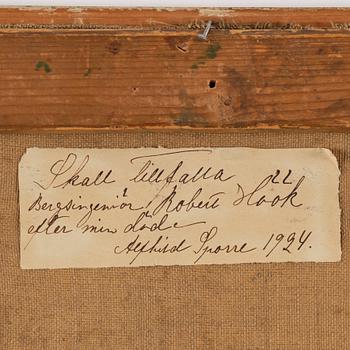 Skall tillfalla 22
Bergsingeniör Robert Hook
efter min död
Alfhild Sparre 1924.